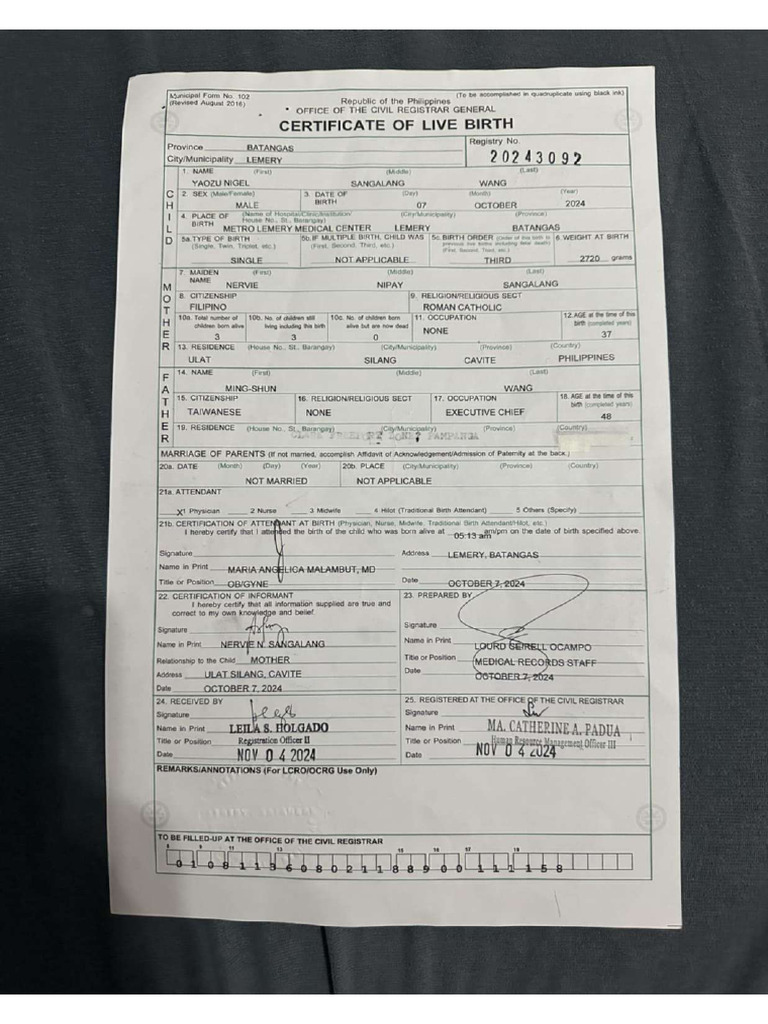 Municipal Form No. 102
(Revised August 2016)
(To be accomplished in quadruplicate using black ink)
Republic of the Philippines
OFFICE OF THE CIVIL REGISTRAR GENERAL
CERTIFICATE OF LIVE BIRTH
Province BATANGAS
Registry No.
City/Municipality LEMERY
20243092
CHILD
1. NAME (First) (Middle) (Last)
YAOZU NIGEL SANGALANG WANG
2. SEX (Male/Female) 3. DATE OF BIRTH (Day) (Month) (Year)
MALE 07 OCTOBER 2024
4. PLACE OF BIRTH (Name of Hospital/Clinic/Institution/ House No., St., Barangay) (City/Municipality) (Province)
METRO LEMERY MEDICAL CENTER LEMERY BATANGAS
5a. TYPE OF BIRTH (Single, Twin, Triplet, etc.) 5b. IF MULTIPLE BIRTH, CHILD WAS (First, Second, Third, etc.) 5c. BIRTH ORDER (Order of this birth to previous live births including fetal death) (First, Second, Third, etc.) 6. WEIGHT AT BIRTH
SINGLE NOT APPLICABLE THIRD 2720 grams
MOTHER
7. MAIDEN NAME (First) (Middle) (Last)
NERVIE NIPAY SANGALANG
8. CITIZENSHIP 9. RELIGION/RELIGIOUS SECT
FILIPINO ROMAN CATHOLIC
10a. Total number of children born alive 10b. No. of children still living including this birth 10c. No. of children born alive but are now dead 11. OCCUPATION 12. AGE at the time of this birth (completed years)
3 3 0 NONE 37
13. RESIDENCE (House No., St., Barangay) (City/Municipality) (Province) (Country)
ULAT SILANG CAVITE PHILIPPINES
FATHER
14. NAME (First) (Middle) (Last)
MING-SHUN WANG
15. CITIZENSHIP 16. RELIGION/RELIGIOUS SECT 17. OCCUPATION 18. AGE at the time of this birth (completed years)
TAIWANESE NONE EXECUTIVE CHIEF 48
19. RESIDENCE (House No., St., Barangay) (City/Municipality) (Province) (Country)
CLARK FREEPORT ZONE, PAMPANGA
MARRIAGE OF PARENTS (If not married, accomplish Affidavit of Acknowledgement/Admission of Paternity at the back.)
20a. DATE (Month) (Day) (Year) 20b. PLACE (City/Municipality) (Province) (Country)
NOT MARRIED NOT APPLICABLE
21a. ATTENDANT
X 1 Physician 2 Nurse 3 Midwife 4 Hilot (Traditional Birth Attendant) 5 Others (Specify)
21b. CERTIFICATION OF ATTENDANT AT BIRTH (Physician, Nurse, Midwife, Traditional Birth Attendant/Hilot, etc.)
I hereby certify that I attended the birth of the child who was born alive at 05:13 am am/pm on the date of birth specified above.
Signature Address LEMERY, BATANGAS
Name in Print MARIA ANGELICA MALAMBUT, MD
Title or Position OB/GYNE Date OCTOBER 7, 2024
22. CERTIFICATION OF INFORMANT
I hereby certify that all information supplied are true and
correct to my own knowledge and belief.
Signature
Name in Print NERVIE N. SANGALANG
Relationship to the Child MOTHER
Address ULAT SILANG, CAVITE
Date OCTOBER 7, 2024
23. PREPARED BY
Signature
Name in Print LOURD SEIRELL OCAMPO
Title or Position MEDICAL RECORDS STAFF
Date OCTOBER 7, 2024
24. RECEIVED BY
Signature
Name in Print LEILA S. HOLGADO
Title or Position Registration Officer II
Date NOV 04 2024
25. REGISTERED AT THE OFFICE OF THE CIVIL REGISTRAR
Signature
Name in Print MA. CATHERINE A. PADUA
Title or Position Human Resource Management Officer III
Date NOV 04 2024
REMARKS/ANNOTATIONS (For LCRO/OCRG Use Only)
TO BE FILLED-UP AT THE OFFICE OF THE CIVIL REGISTRAR
8 9 11 13 15 16 17 19